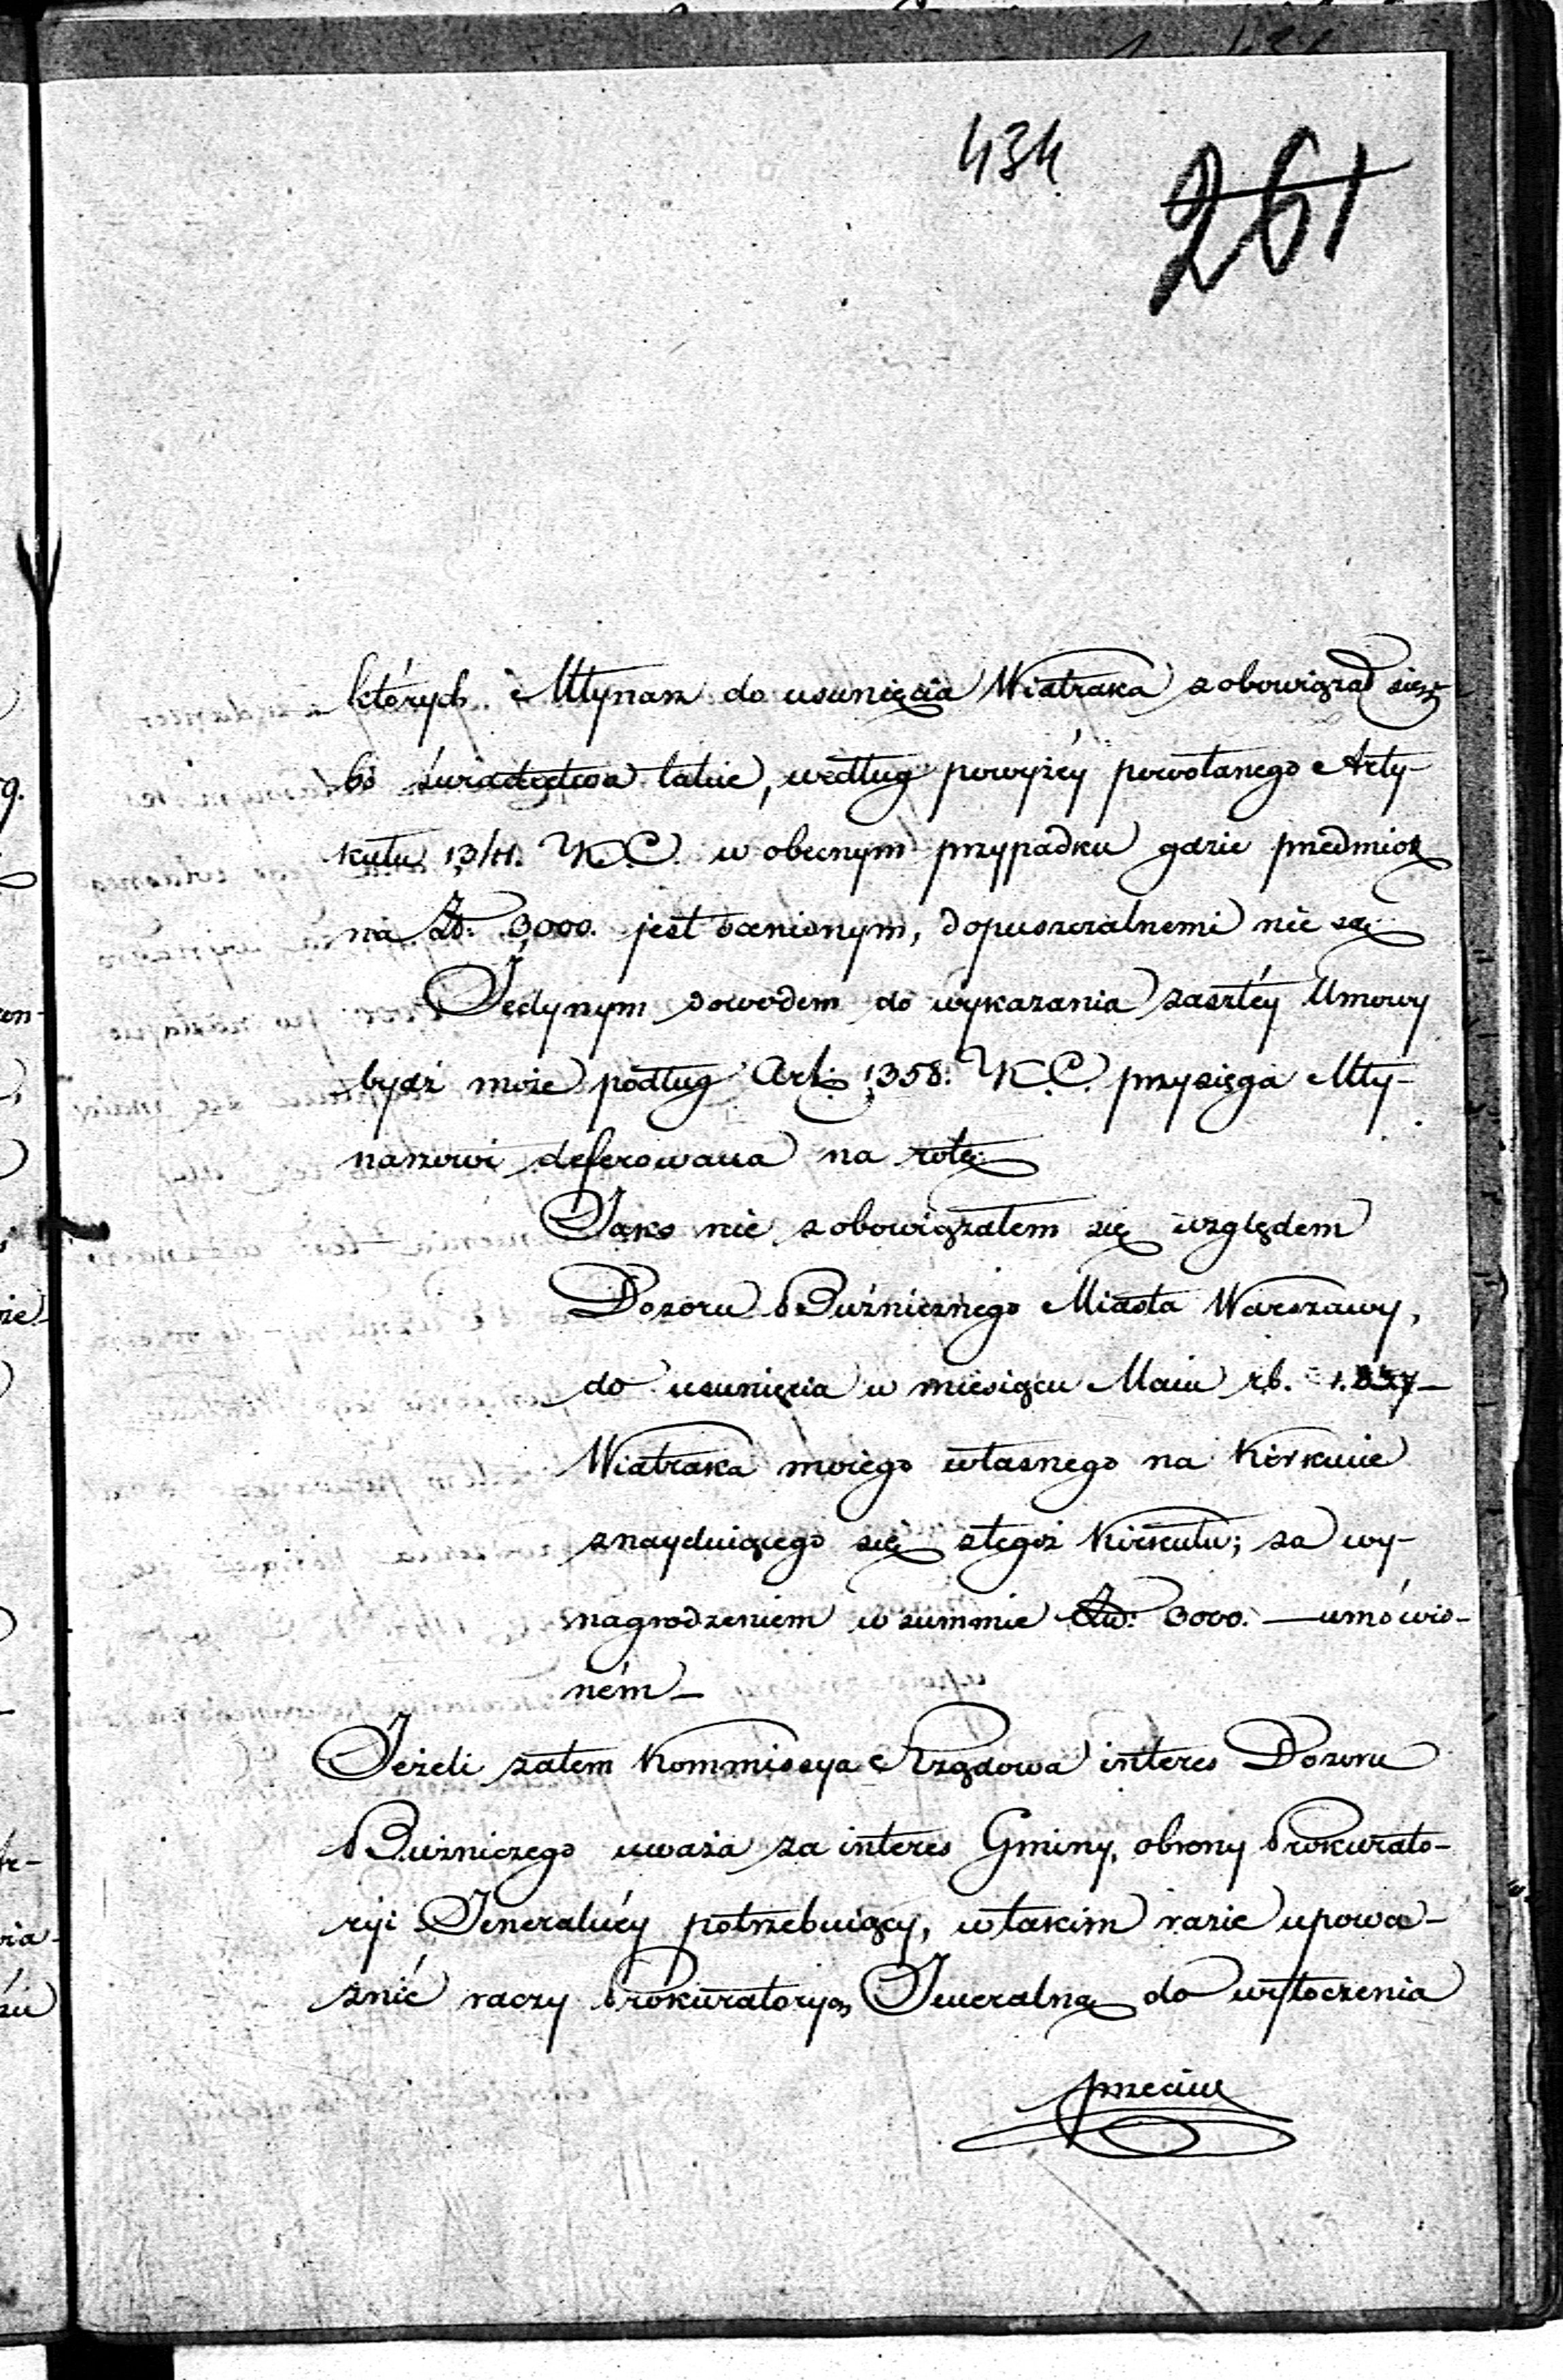 434
261
których Młynarz do usunięcia Wiatraka zobowiązał się
bo świadectwa takie, według powyżéy powołanego Arty-
kułu 1341. K.C. w obecnym przypadku gdzie przedmiot
na Zł. 3,000. jest ocenionym, dopuszczalnemi nie są
Jedynym dowodem do wykazania zaszłéy Umowy
bydź może podług Art: 1358: K.C. przysięga Mły-
narzowi deferowana na rotę
Jako nie zobowiązałem się względem
Dozoru Bużnicznego Miasta Warszawy,
do usunięcia w miesiącu Maiu rb. 1.837-
Wiatraka moiego własnego na Kirkucie
znayduiącego się z tegoż Kirkutu; za wy-
nagrodzeniem w summie Zł: 3000. — umówio-
ném -
Jeżeli zatem Kommissya Rządowa interes Dozoru
Bużniczego uważa za interes Gminy, obrony Prokurato-
ryi Jeneralnéy potrzebuiący, w takim razie upowa-
żnić raczy Prokuratoryą Jeneralną do wytoczenia
przeciw